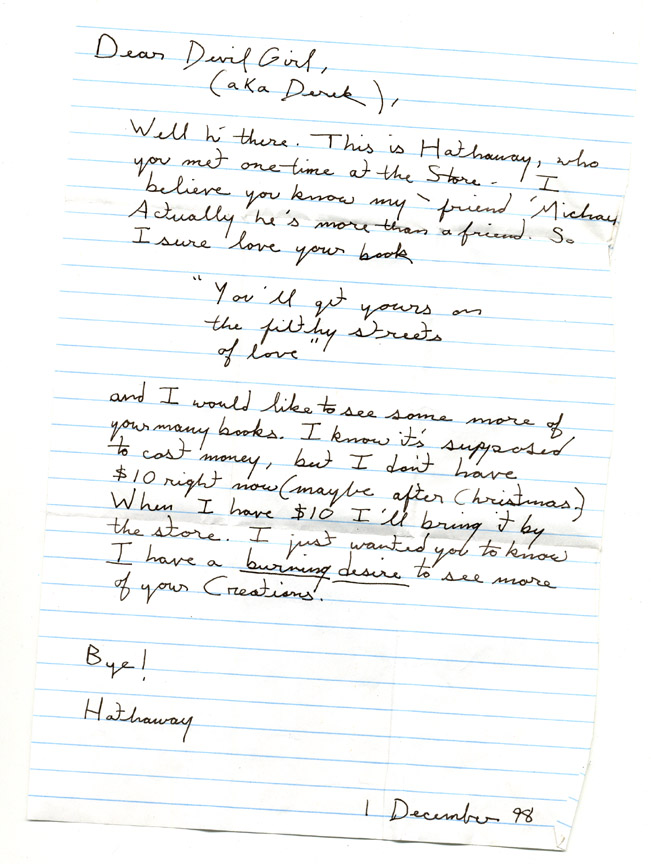 Dear Devil Girl,
(aka Derek),
Well hi there. This is Hathaway, who
you met one time at the Store. I
believe you know my "friend" Michael
Actually he's more than a friend. So
I sure love your book
"You'll get yours on
the filthy streets
of love"
and I would like to see some more of
your many books. I know it's supposed
to cost money, but I don't have
$10 right now (maybe after Christmas.)
When I have $10 I'll bring it by
the store. I just wanted you to know
I have a burning desire to see more
of your Creations.
Bye!
Hathaway
1 December 98